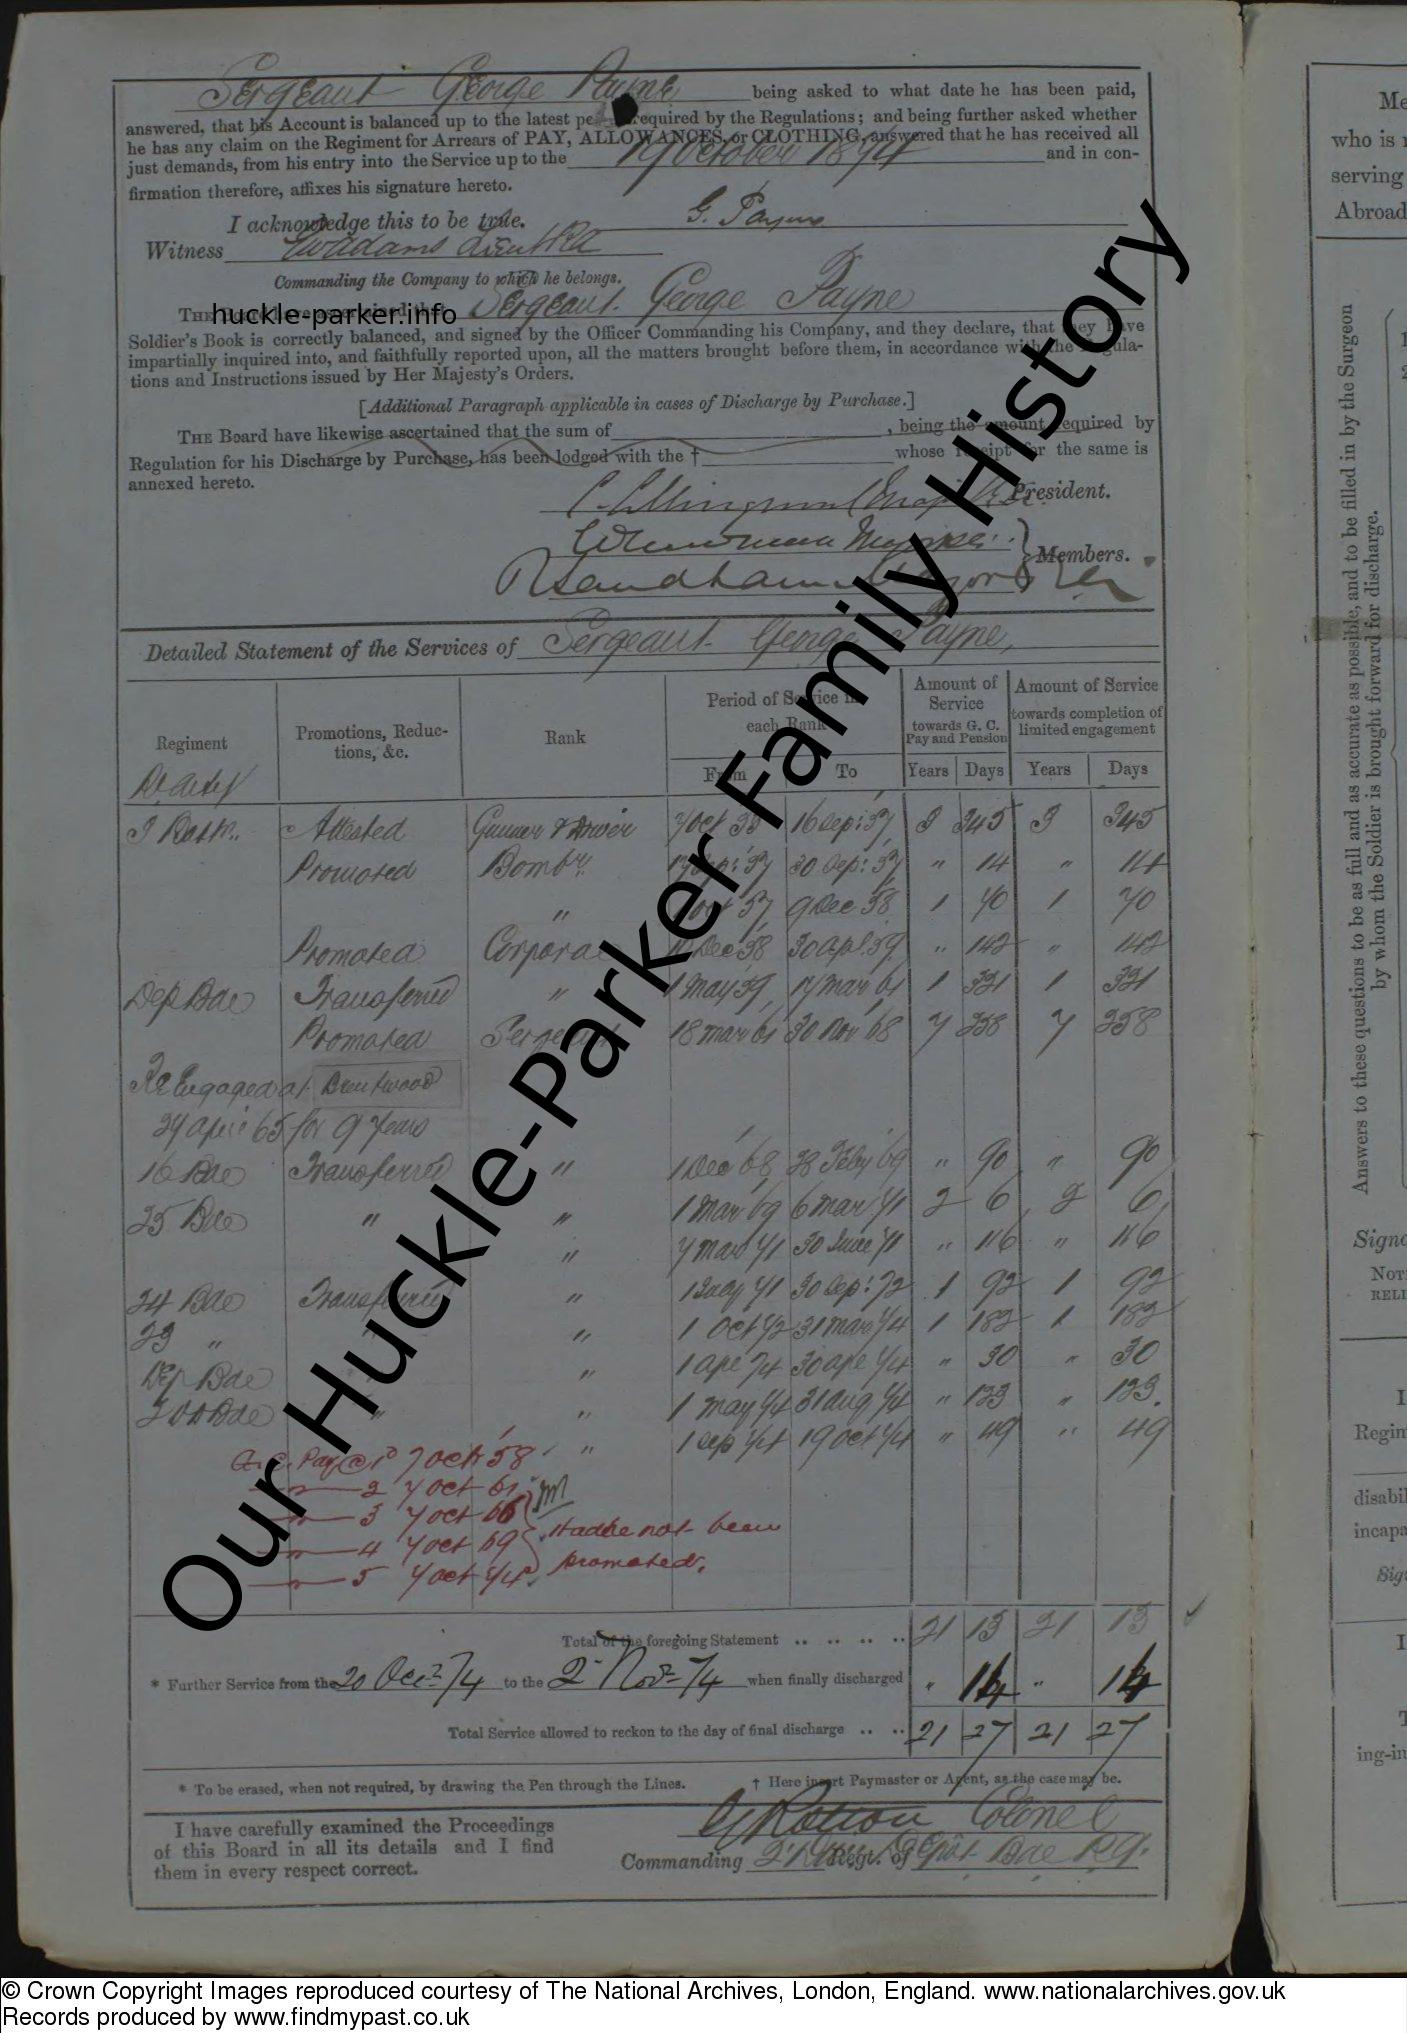 Sergeant George Payne being asked to what date he has been paid,
answered, that his Account is balanced up to the latest required by the Regulations; and being further asked whether
he has any claim on the Regiment for Arrears of PAY, ALLOWANCES, or CLOTHING, answered that he has received all
just demands, from his entry into the Service up to the 19 October 1874 and in con-
firmation therefore, affixes his signature hereto.
I acknowledge this to be true. G. Payne
Witness
Commanding the Company to which he belongs.
huckle-parker.info
THE Board have ascertained that Sergeant George Payne
Soldier's Book is correctly balanced, and signed by the Officer Commanding his Company, and they declare, that they have
impartially inquired into, and faithfully reported upon, all the matters brought before them, in accordance with the Regula-
tions and Instructions issued by Her Majesty's Orders.
[Additional Paragraph applicable in cases of Discharge by Purchase.]
THE Board have likewise ascertained that the sum of , being the amount required by
Regulation for his Discharge by Purchase, has been lodged with the † whose receipt for the same is
annexed hereto.
President.
Members.
Detailed Statement of the Services of Sergeant George Payne,
Regiment
Promotions, Reduc-
tions, &c.
Rank
Period of Service in
each Rank
From To
Amount of
Service
towards G. C.
Pay and Pension
Years Days
Amount of Service
towards completion of
limited engagement
Years Days
Attested Gunner & Driver 16 Sep: 57 3 345 3 345
Promoted Bombr. 30 Sep: 57 " 14 " 14
" 9 Dec 58 1 70 1 70
Promoted Corporal Dec 58 30 Apl. 59 " 142 " 142
Dep Bde Transferred " 1 May 59 17 Mar 61 1 321 1 321
Promoted Sergeant 18 Mar 61 30 Nov 68 7 258 7 258
Re Engaged at Brentwood
65 for 9 Years
16 Bde Transferred " 1 Dec 68 28 Feby 69 " 90 " 90
25 Bde " " 1 Mar 69 6 Mar 71 2 6 2 6
" 7 Mar 71 30 June 71 " 116 " 116
24 Bde Transferred " 1 July 71 30 Sep: 72 1 92 1 92
23 " " " 1 Oct 72 31 Mar 74 1 182 1 182
Dep Bde " " 1 Ape 74 30 Ape 74 " 30 " 30
Bde " " 1 May 74 31 Aug 74 " 123 " 123.
" 1 Sep 74 19 Oct 74 " 49 " 49
G. C. Pay @ 1d 7 Oct 58
" 2 7 Oct 61
" 3 7 Oct 66
" 4 7 Oct 69
" 5 7 Oct 74
Had he not been
promoted.
Total of the foregoing Statement .. .. .. .. 21 13 21 13
* Further Service from the 20 74 to the 2 74 when finally discharged " 14 " 14
Total Service allowed to reckon to the day of final discharge .. .. 21 27 21 27
* To be erased, when not required, by drawing the Pen through the Lines. † Here insert Paymaster or Agent, as the case may be.
I have carefully examined the Proceedings
of this Board in all its details and I find
them in every respect correct.
Colonel
Commanding Regt. of Bde R.A.
Our Huckle-Parker Family History
Me
who is
serving
Abroad
Answers to these questions to be as full and as accurate as possible, and to be filled in by the Surgeon
by whom the Soldier is brought forward for discharge.
Signa
NOT
RELI
I
Regim
disabil
incapa
Sig
I
ing-in
© Crown Copyright Images reproduced courtesy of The National Archives, London, England. www.nationalarchives.gov.uk
Records produced by www.findmypast.co.uk